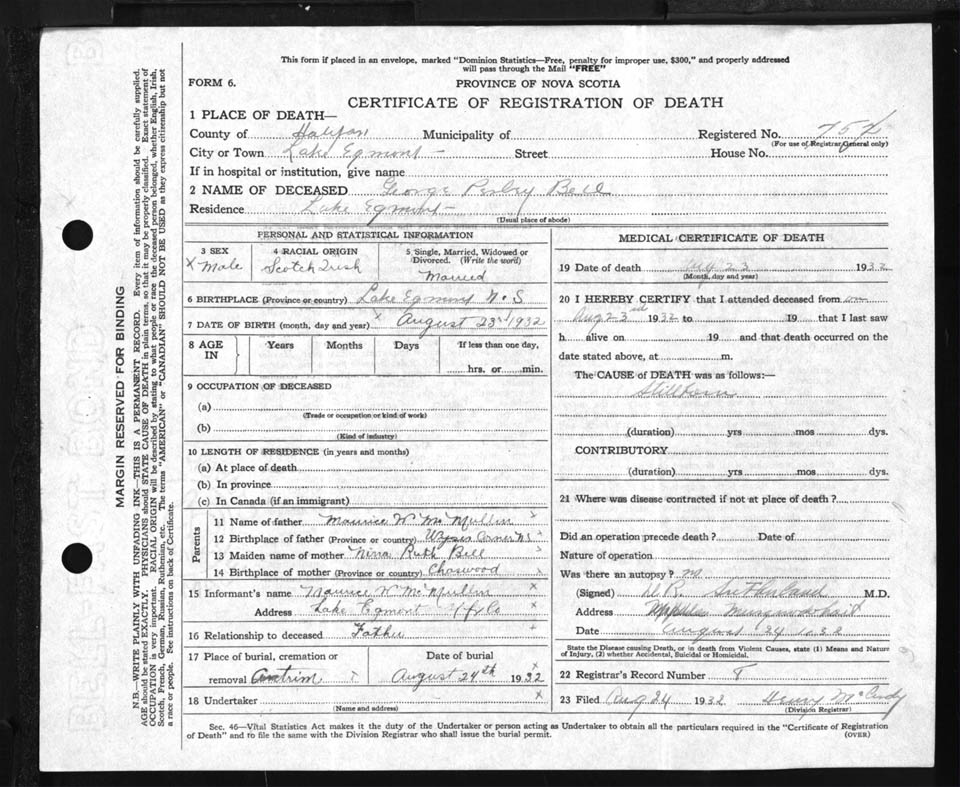 This form if placed in an envelope, marked "Dominion Statistics—Free, penalty for improper use, $300," and properly addressed
will pass through the Mail "FREE"
FORM 6.
PROVINCE OF NOVA SCOTIA
CERTIFICATE OF REGISTRATION OF DEATH
1 PLACE OF DEATH—
County of Halifax Municipality of Registered No. 75
(For use of Registrar General only)
City or Town Lake Egmont — Street House No.
If in hospital or institution, give name
2 NAME OF DECEASED George Perley Bell
Residence Lake Egmont —
(Usual place of abode)
PERSONAL AND STATISTICAL INFORMATION
3 SEX 4 RACIAL ORIGIN 5 Single, Married, Widowed or
Divorced. (Write the word)
x Male Scotch Irish Married
6 BIRTHPLACE (Province or country) Lake Egmont N.S
7 DATE OF BIRTH (month, day and year) x August 23rd 1932
8 AGE IN Years Months Days If less than one day,
hrs. or min.
9 OCCUPATION OF DECEASED
(a)
(Trade or occupation or kind of work)
(b)
(Kind of industry)
10 LENGTH OF RESIDENCE (in years and months)
(a) At place of death
(b) In province
(c) In Canada (if an immigrant)
Parents
11 Name of father Maurice W McMullin x
12 Birthplace of father (Province or country) Corner N.S
13 Maiden name of mother Nina Ruth Bell x
14 Birthplace of mother (Province or country) Chaswood x
15 Informant's name Maurice W McMullin x
Address Lake Egmont Hfx Co x
16 Relationship to deceased Father +
17 Place of burial, cremation or Date of burial
removal Antrim x August 24th 1932 x
18 Undertaker x
(Name and address)
MEDICAL CERTIFICATE OF DEATH
19 Date of death Aug 23 1932
(Month, day and year)
20 I HEREBY CERTIFY that I attended deceased from on
Aug 23rd 1932 to 19 that I last saw
h alive on 19 and that death occurred on the
date stated above, at m.
The CAUSE of DEATH was as follows:—
Stillborn
(duration) yrs mos dys.
CONTRIBUTORY
(duration) yrs mos dys.
21 Where was disease contracted if not at place of death?
Did an operation precede death? Date of
Nature of operation
Was there an autopsy? no
(Signed) D.R. Sutherland M.D.
Address Musquodoboit
Date August 24 1932
State the Disease causing Death, or in death from Violent Causes, state (1) Means and Nature
of Injury, (2) whether Accidental, Suicidal or Homicidal.
22 Registrar's Record Number 8
23 Filed Aug 24 1932 Henry McCurdy
(Division Registrar)
Sec. 46—Vital Statistics Act makes it the duty of the Undertaker or person acting as Undertaker to obtain all the particulars required in the "Certificate of Registration
of Death" and to file the same with the Division Registrar who shall issue the burial permit. (OVER)
MARGIN RESERVED FOR BINDING
N.B.—WRITE PLAINLY WITH UNFADING INK—THIS IS A PERMANENT RECORD. Every item of information should be carefully supplied.
AGE should be stated EXACTLY. PHYSICIANS should STATE CAUSE OF DEATH in plain terms, so that it may be properly classified. Exact statement of
OCCUPATION is very important. RACIAL ORIGIN will be described by stating to what people or race the deceased person belonged, whether English, Irish,
Scotch, French, German, Russian, Ruthenian, etc. The terms "AMERICAN" or "CANADIAN" SHOULD NOT BE USED as they express citizenship but not
a race or people. See instructions on back of Certificate.